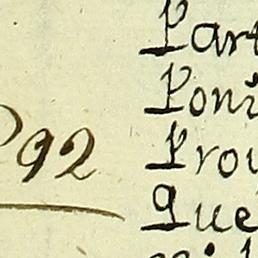 Part
Poni
92
Prou
Que